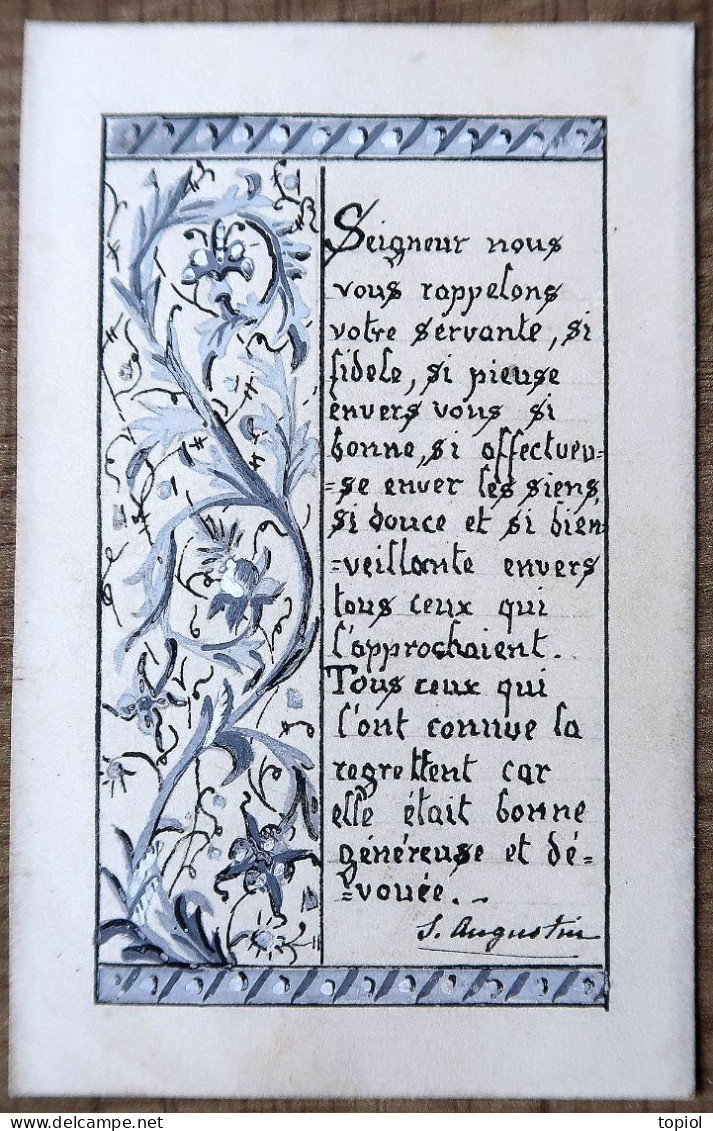 Seigneur nous
vous rappelons
votre servante, si
fidele, si pieuse
envers vous si
bonne, si affectueu-
-se enver les siens,
si douce et si bien
-veillante envers
tous ceux qui
l'approchaient.
Tous ceux qui
l'ont connue la
regrettent car
elle était bonne
généreuse et dé-
-vouée. -
S. Augustin
topiol